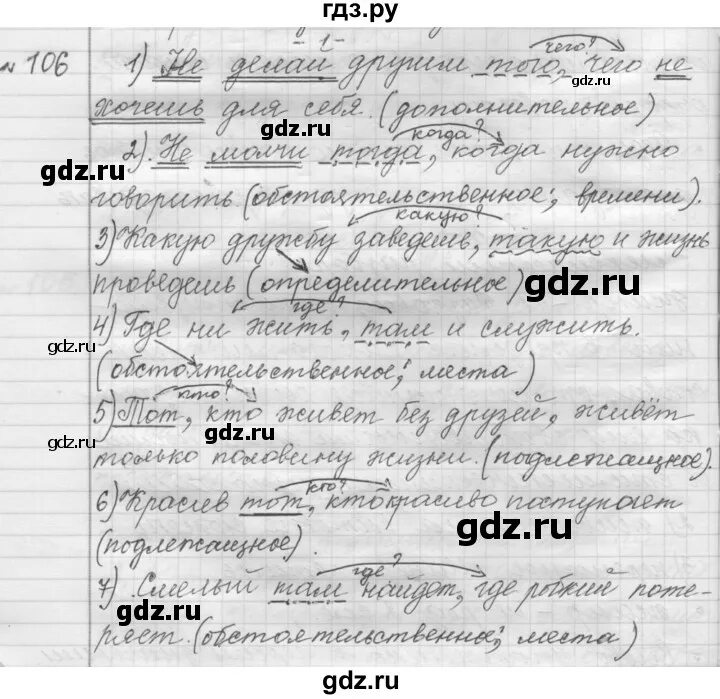 гдз.ру
№ 106 1) Не делай другим того, чего не
чего?
gdz.ru
хочешь для себя. (дополнительное)
gdz.ru gdz.ru
когда?
2). Не молчи тогда, когда нужно
gdz.ru
говорить (обстоятельственное; времени).
какую?
3) Какую дружбу заведешь, такую и жизнь
gdz.ru
проведешь (определительное)
gdz.ru
где?
4) Где ни жить, там и служить.
gdz.ru
(обстоятельственное; места)
gdz.ru
кто?
5) Тот, кто живет без друзей, живёт
gdz.ru
только половину жизни. (подлежащное).
gdz.ru
кто?
6) Красив тот, кто красиво поступает
gdz.ru
(подлежащное).
gdz.ru
где?
7) Смелый там найдет, где робкий поте-
gdz.ru
ряет. (обстоятельственное; места)
gdz.ru